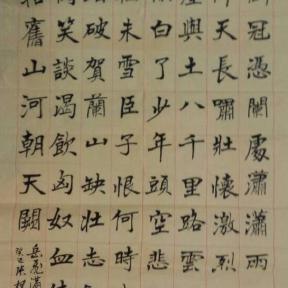 冠憑闌處瀟瀟雨
天長嘯壯懷激烈
塵與土八千里路雲
白了少年頭空悲
未雪臣子恨何時
破賀蘭山缺壯志
笑談渴飲匈奴血
舊山河朝天闕
岳飛滿
癸巳